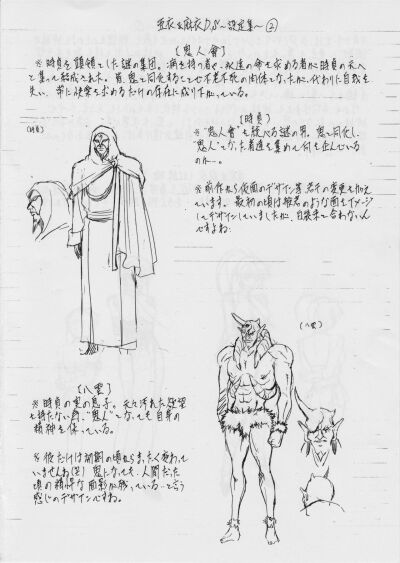 亜衣&麻衣D.S〜設定集〜②
【鬼人會】
※時貞を頭領とした謎の集団。病を持つ者や、永遠の命を求める者が時貞の元へ
と集って結成された。皆、鬼と同化することで不老不死の肉体となったが、代わりに自我を
失い、常に快楽を求めるだけの存在に成り下がっている。
【時貞】
(時貞)
※"鬼人會"を統べる謎の男。鬼と同化し、
"鬼人"となった者達を集めて何を企んでいる
のか…。
※前作から仮面のデザイン等、若干の変更を加え
ています。最初の頃は般若のような面をイメージ
してデザインしていましたが、白装束と合わないん
ですよね。
(八雲)
【八雲】
※時貞の実の息子。元々汚れた欲望
を持たない為、"鬼人"となっても自身の
精神を保っている。
※彼だけは初期の頃からまったく変わって
いませんね(笑)鬼になっても、人間だった
頃の精悍な面影が残っている…と言う
感じのデザインですね。